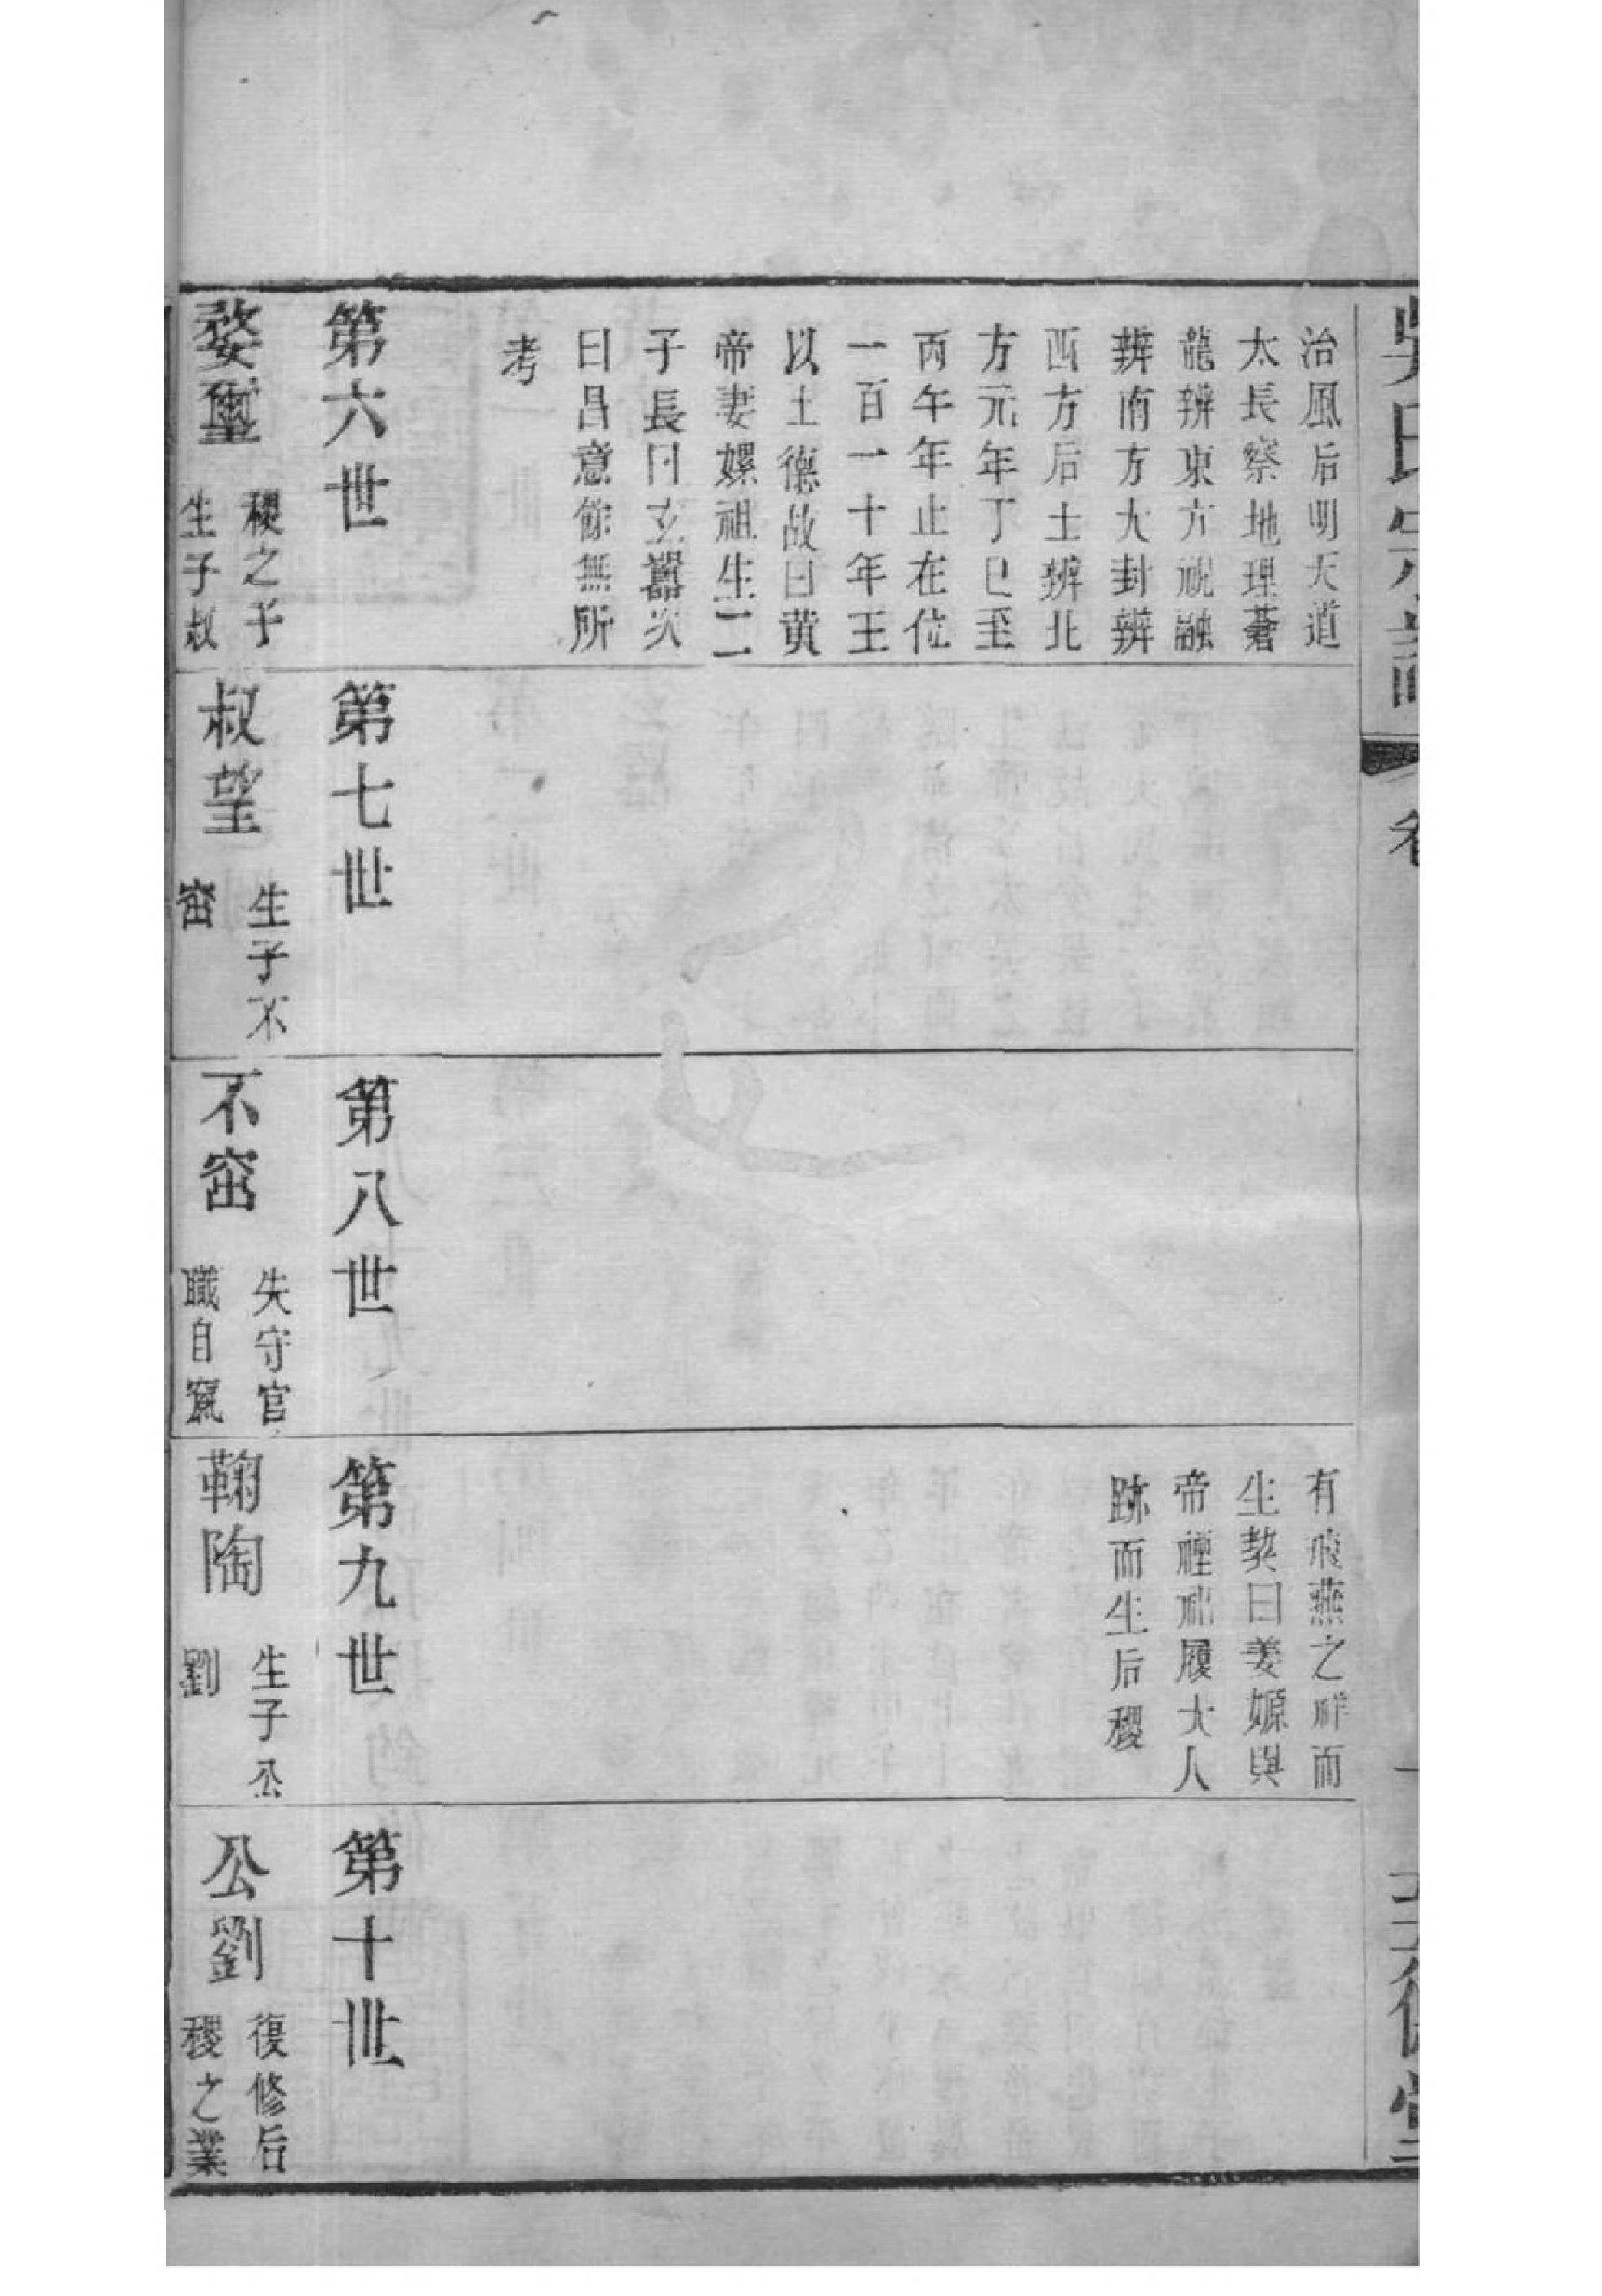 治風后明天道
太長察地理蒼
龍辨東方祝融
辨南方大封辨
西方后土辨北
方元年丁巳至
丙午年止在位
一百一十年王
以土德故曰黄
帝妻嫘祖生二
子長曰玄囂次
曰昌意餘無所
考
有飛燕之祥而
生契曰姜嫄與
帝禋祀履大人
跡而生后稷
第六世
第七世
第八世
第九世
第十世
婺璽
稷之子
生子叔
叔望
生子不
窋
不窋
失守官
職自竄
鞠陶
生子公
劉
公劉
復修后
稷之業